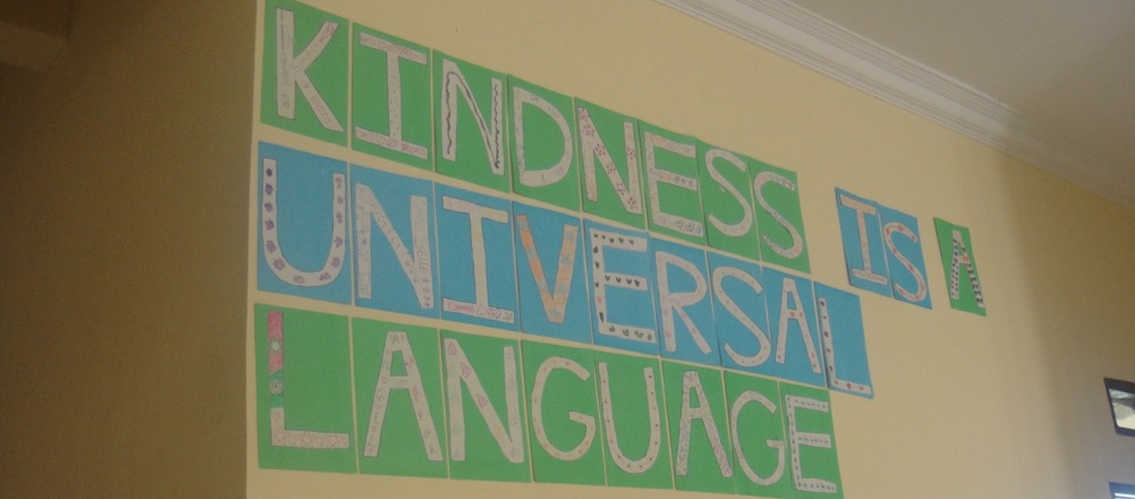 KINDNESS IS A
UNIVERSAL
LANGUAGE